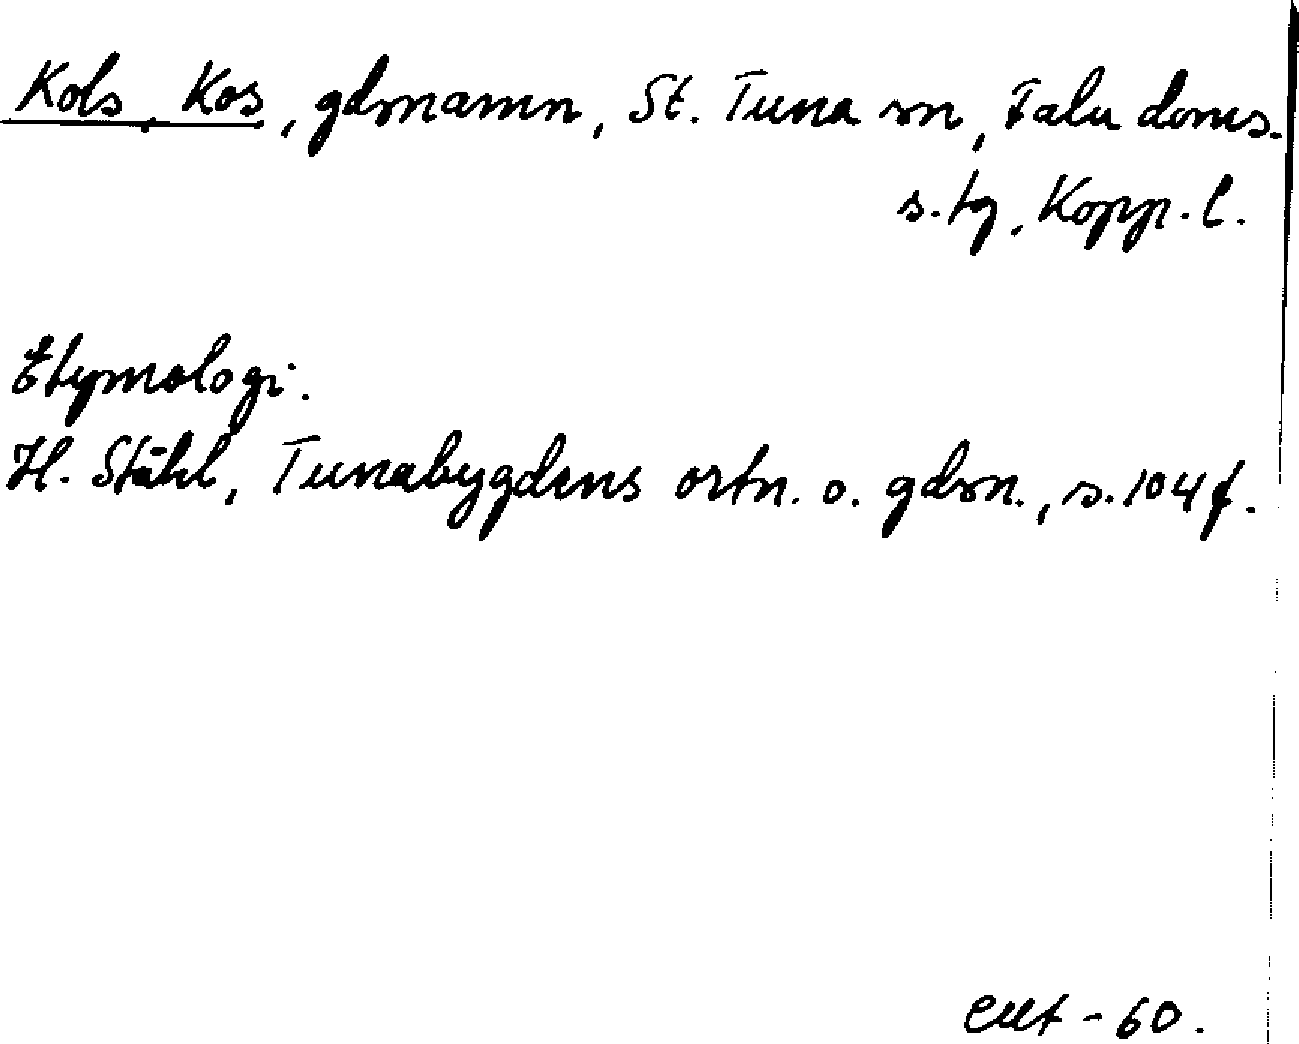 Kols, Kos, gdrnamn, St. Tuna sn, Falu doms.
s. tg, Kopp. l.
Etymologi.
H. Ståhl, Tunabygdens ortn. o. gdsn., s. 104 f.
- 60.